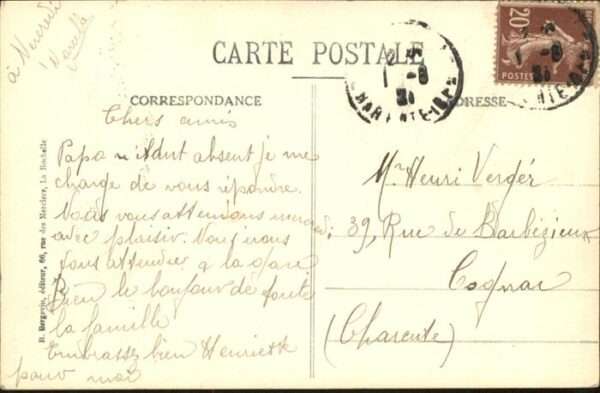 à Mercredi
CARTE POSTALE
CORRESPONDANCE
ADRESSE
20
POSTES
Chers amis
Papa étant absent je me
charge de vous répondre.
Nous vous attendons mercredi
avec plaisir. Nous irons
vous attendre a la gare
Bien le bonjour de toute
la famille
Embrassez bien Henriette
pour moi
Mr Henri Vergér
39, Rue de Barbézieux
Cognac
(Charente)
B. Bergevin, éditeur, 66, rue des Merciers, La Rochelle